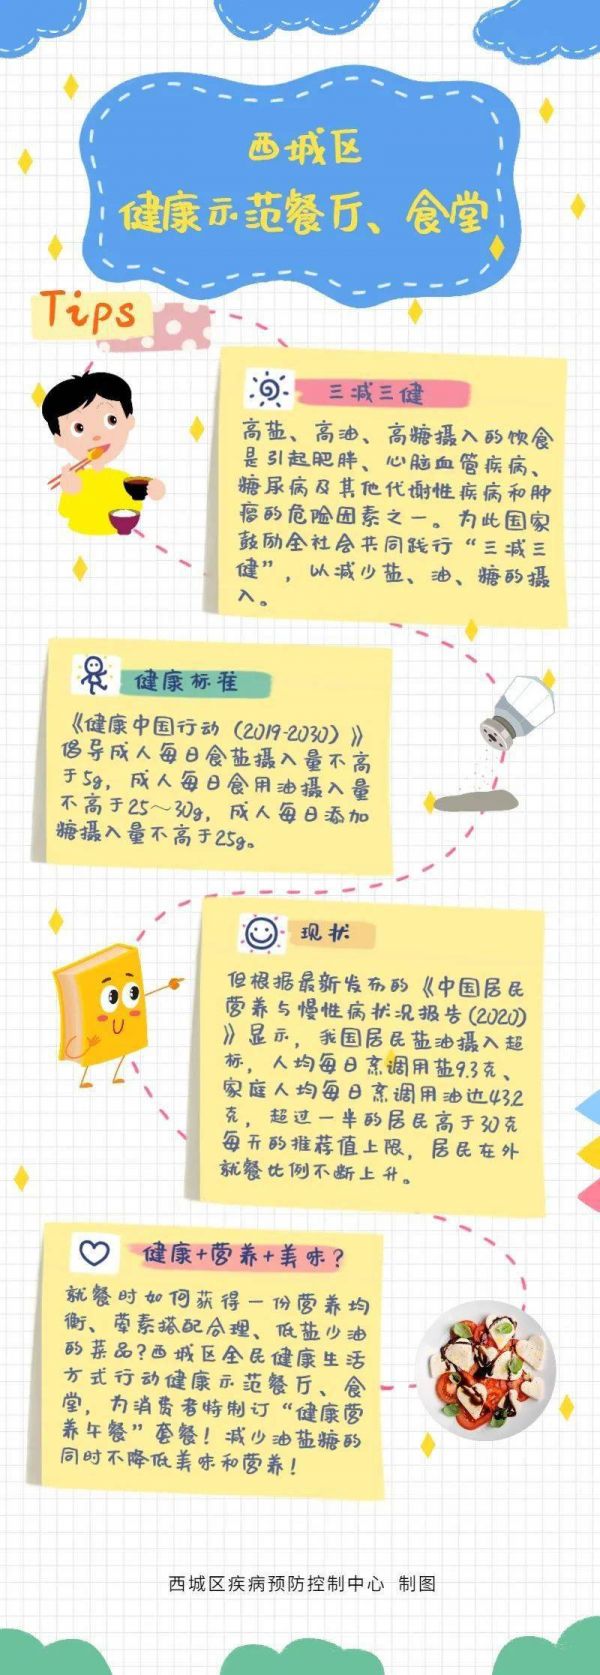 西城区
健康示范餐厅、食堂
Tips
三减三健
高盐、高油、高糖摄入的饮食
是引起肥胖、心脑血管疾病、
糖尿病及其他代谢性疾病和肿
瘤的危险因素之一。为此国家
鼓励全社会共同践行“三减三
健”，以减少盐、油、糖的摄
入。
健康标准
《健康中国行动（2019-2030）》
倡导成人每日食盐摄入量不高
于5g，成人每日食用油摄入量
不高于25～30g，成人每日添加
糖摄入量不高于25g。
现状
但根据最新发布的《中国居民
营养与慢性病状况报告(2020)
》显示，我国居民盐油摄入超
标，人均每日烹调用盐9.3克、
家庭人均每日烹调用油达43.2
克，超过一半的居民高于30克
每天的推荐值上限，居民在外
就餐比例不断上升。
健康+营养+美味？
就餐时如何获得一份营养均
衡、荤素搭配合理、低盐少油
的菜品?西城区全民健康生活
方式行动健康示范餐厅、食
堂，为消费者特制订“健康营
养午餐”套餐！减少油盐糖的
同时不降低美味和营养！
西城区疾病预防控制中心 制图